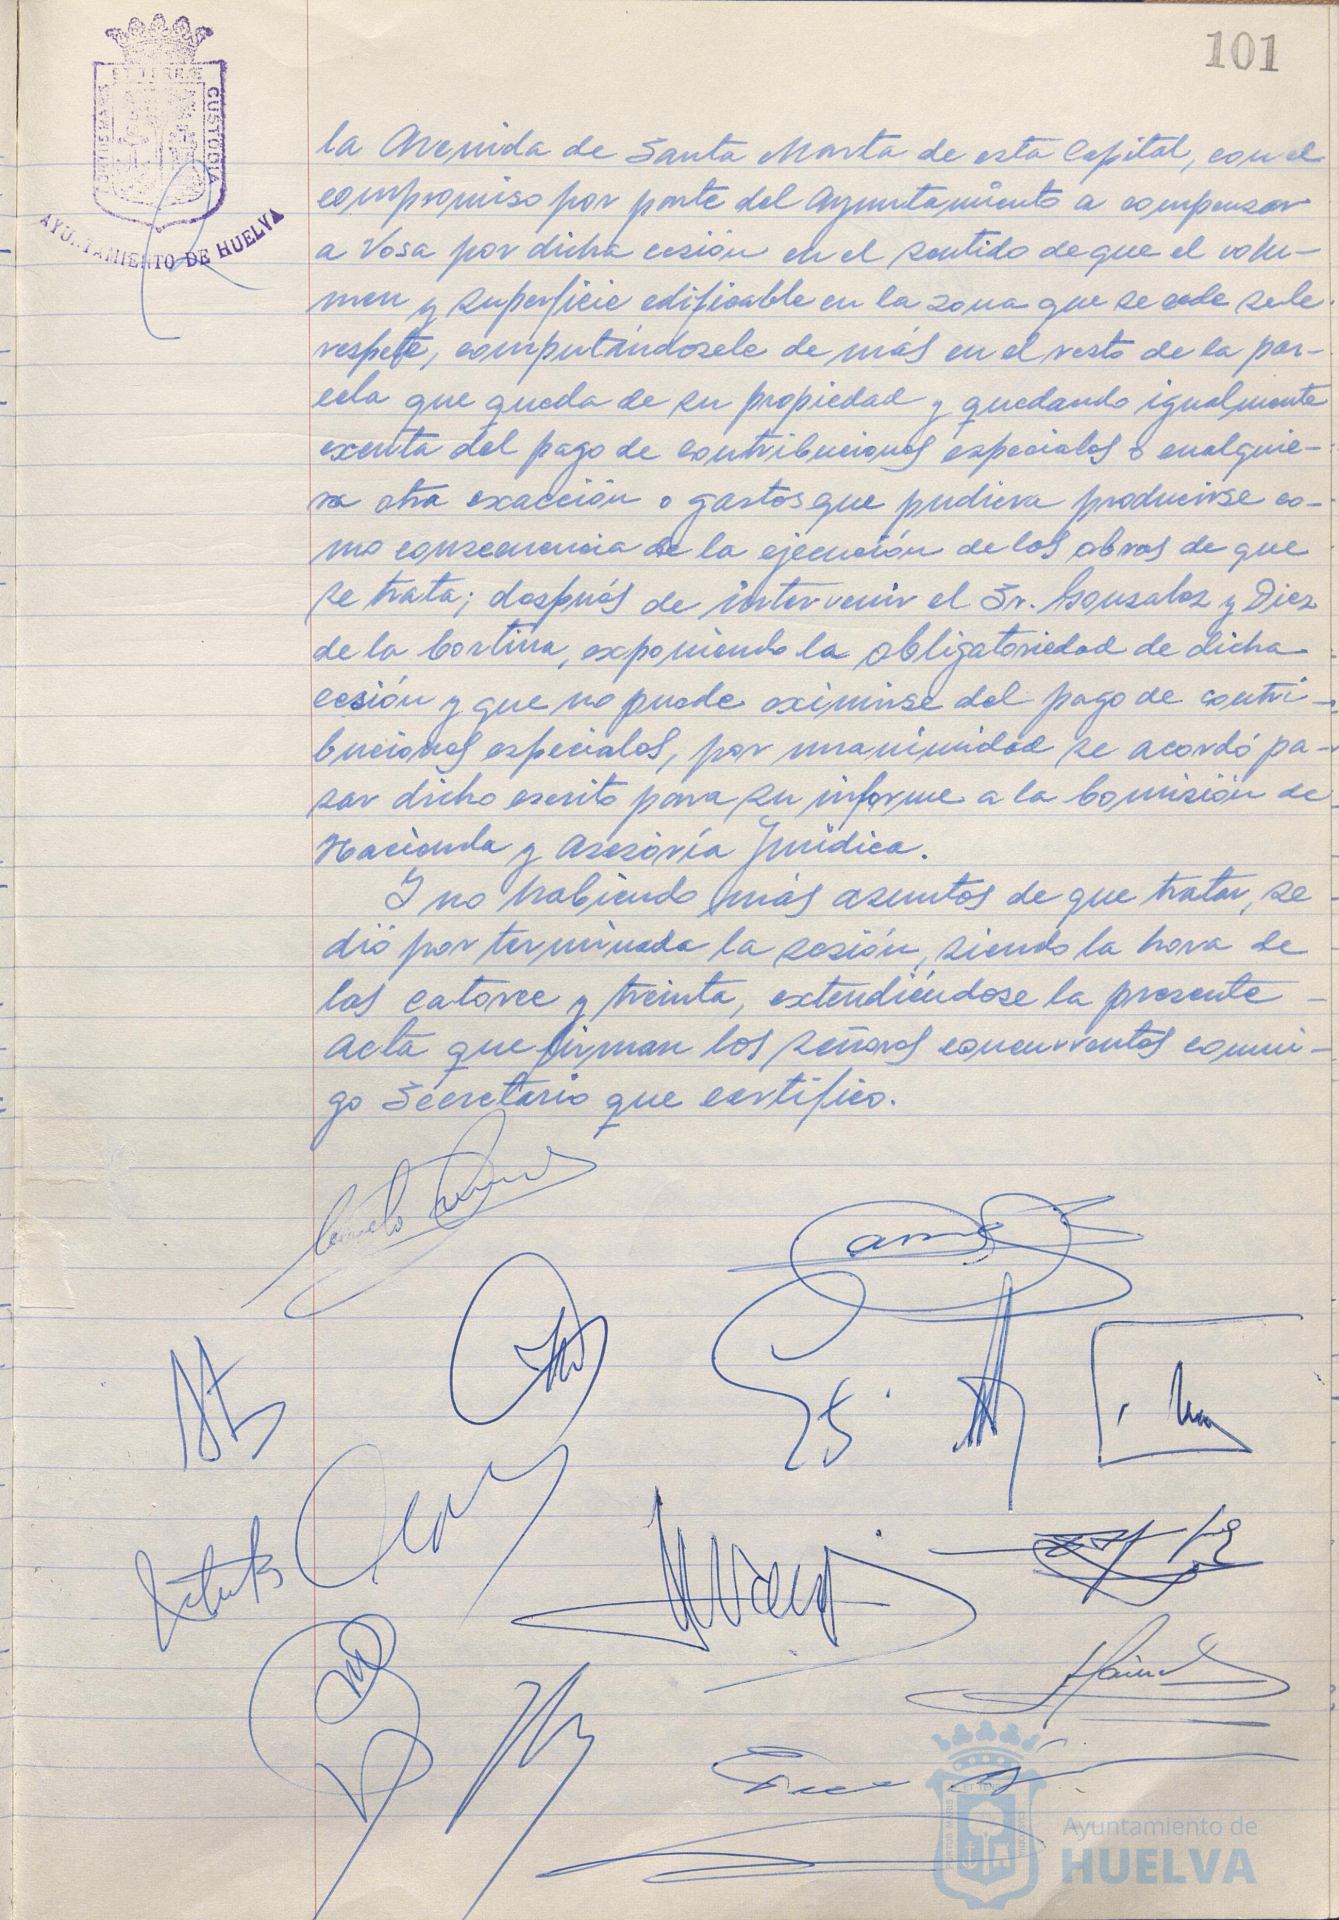 101
PORTUS MARIS ET TERRAE CUSTODIA
AYUNTAMIENTO DE HUELVA
la Avenida de Santa Marta de esta Capital, con el
compromiso por parte del Ayuntamiento a compensar
a Vosa por dicha cesión en el sentido de que el volu-
men y superficie edificable en la zona que se cede se le
respete, computándosele de más en el resto de la par-
cela que queda de su propiedad y quedando igualmente
exenta del pago de contribuciones especiales o cualquie-
ra otra exacción o gastos que pudiera producirse co-
mo consecuencia de la ejecución de las obras de que
se trata; después de intervenir el Sr. Gonzalez y Diez
de la Cortina, exponiendo la obligatoriedad de dicha
cesión y que no puede eximirse del pago de contri-
buciones especiales, por unanimidad se acordó pa-
sar dicho escrito para su informe a la Comisión de
Hacienda y Asesoría Jurídica.
Y no habiendo más asuntos de que tratar, se
dió por terminada la sesión, siendo la hora de
las catorce y treinta, extendiéndose la presente
acta que firman los señores concurrentes conmi-
go Secretario que certifico.
PORTUS MARIS ET TERRAE CUSTODIA
Ayuntamiento de
HUELVA